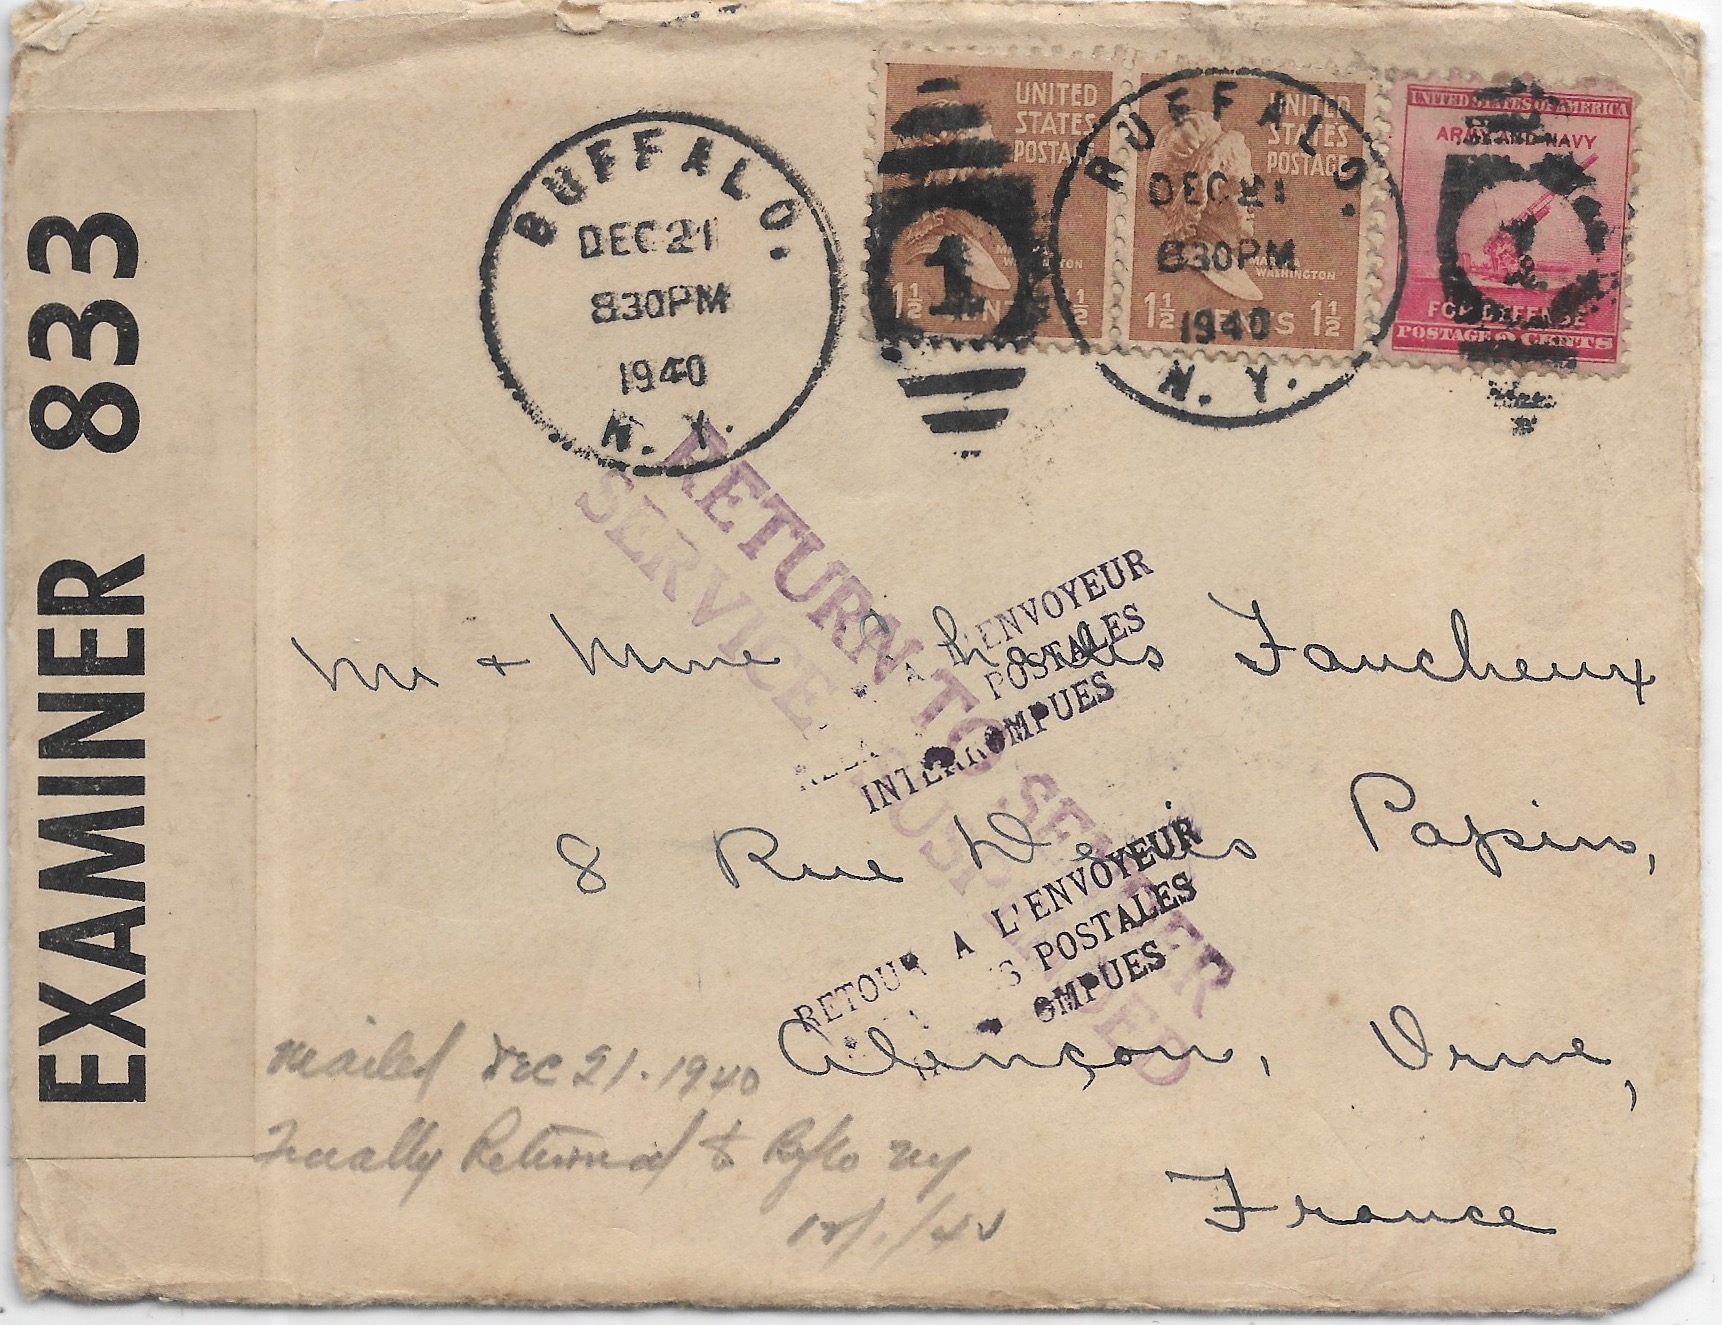 EXAMINER 833
BUFFALO.
DEC 21
830PM
1940
N. Y.
UNITED
STATES
POSTAGE
WASHINGTON
1½ CENTS 1½
UNITED
STATES
POSTAGE
MARTHA
WASHINGTON
1½ CENTS 1½
BUFFALO.
DEC 21
830PM
1940
N. Y.
1
UNITED STATES OF AMERICA
ARMY AND NAVY
FOR DEFENSE
POSTAGE 2 CENTS
RETURN TO SENDER
SERVICE SUSPENDED
A L'ENVOYEUR
POSTALES
INTERROMPUES
RETOUR A L'ENVOYEUR
POSTALES
OMPUES
Mr + Mme Charles Faucheux
8 Rue Denis Papin,
Alençon, Orne,
France
Mailed Dec 21. 1940
Finally Returned to Bflo NY